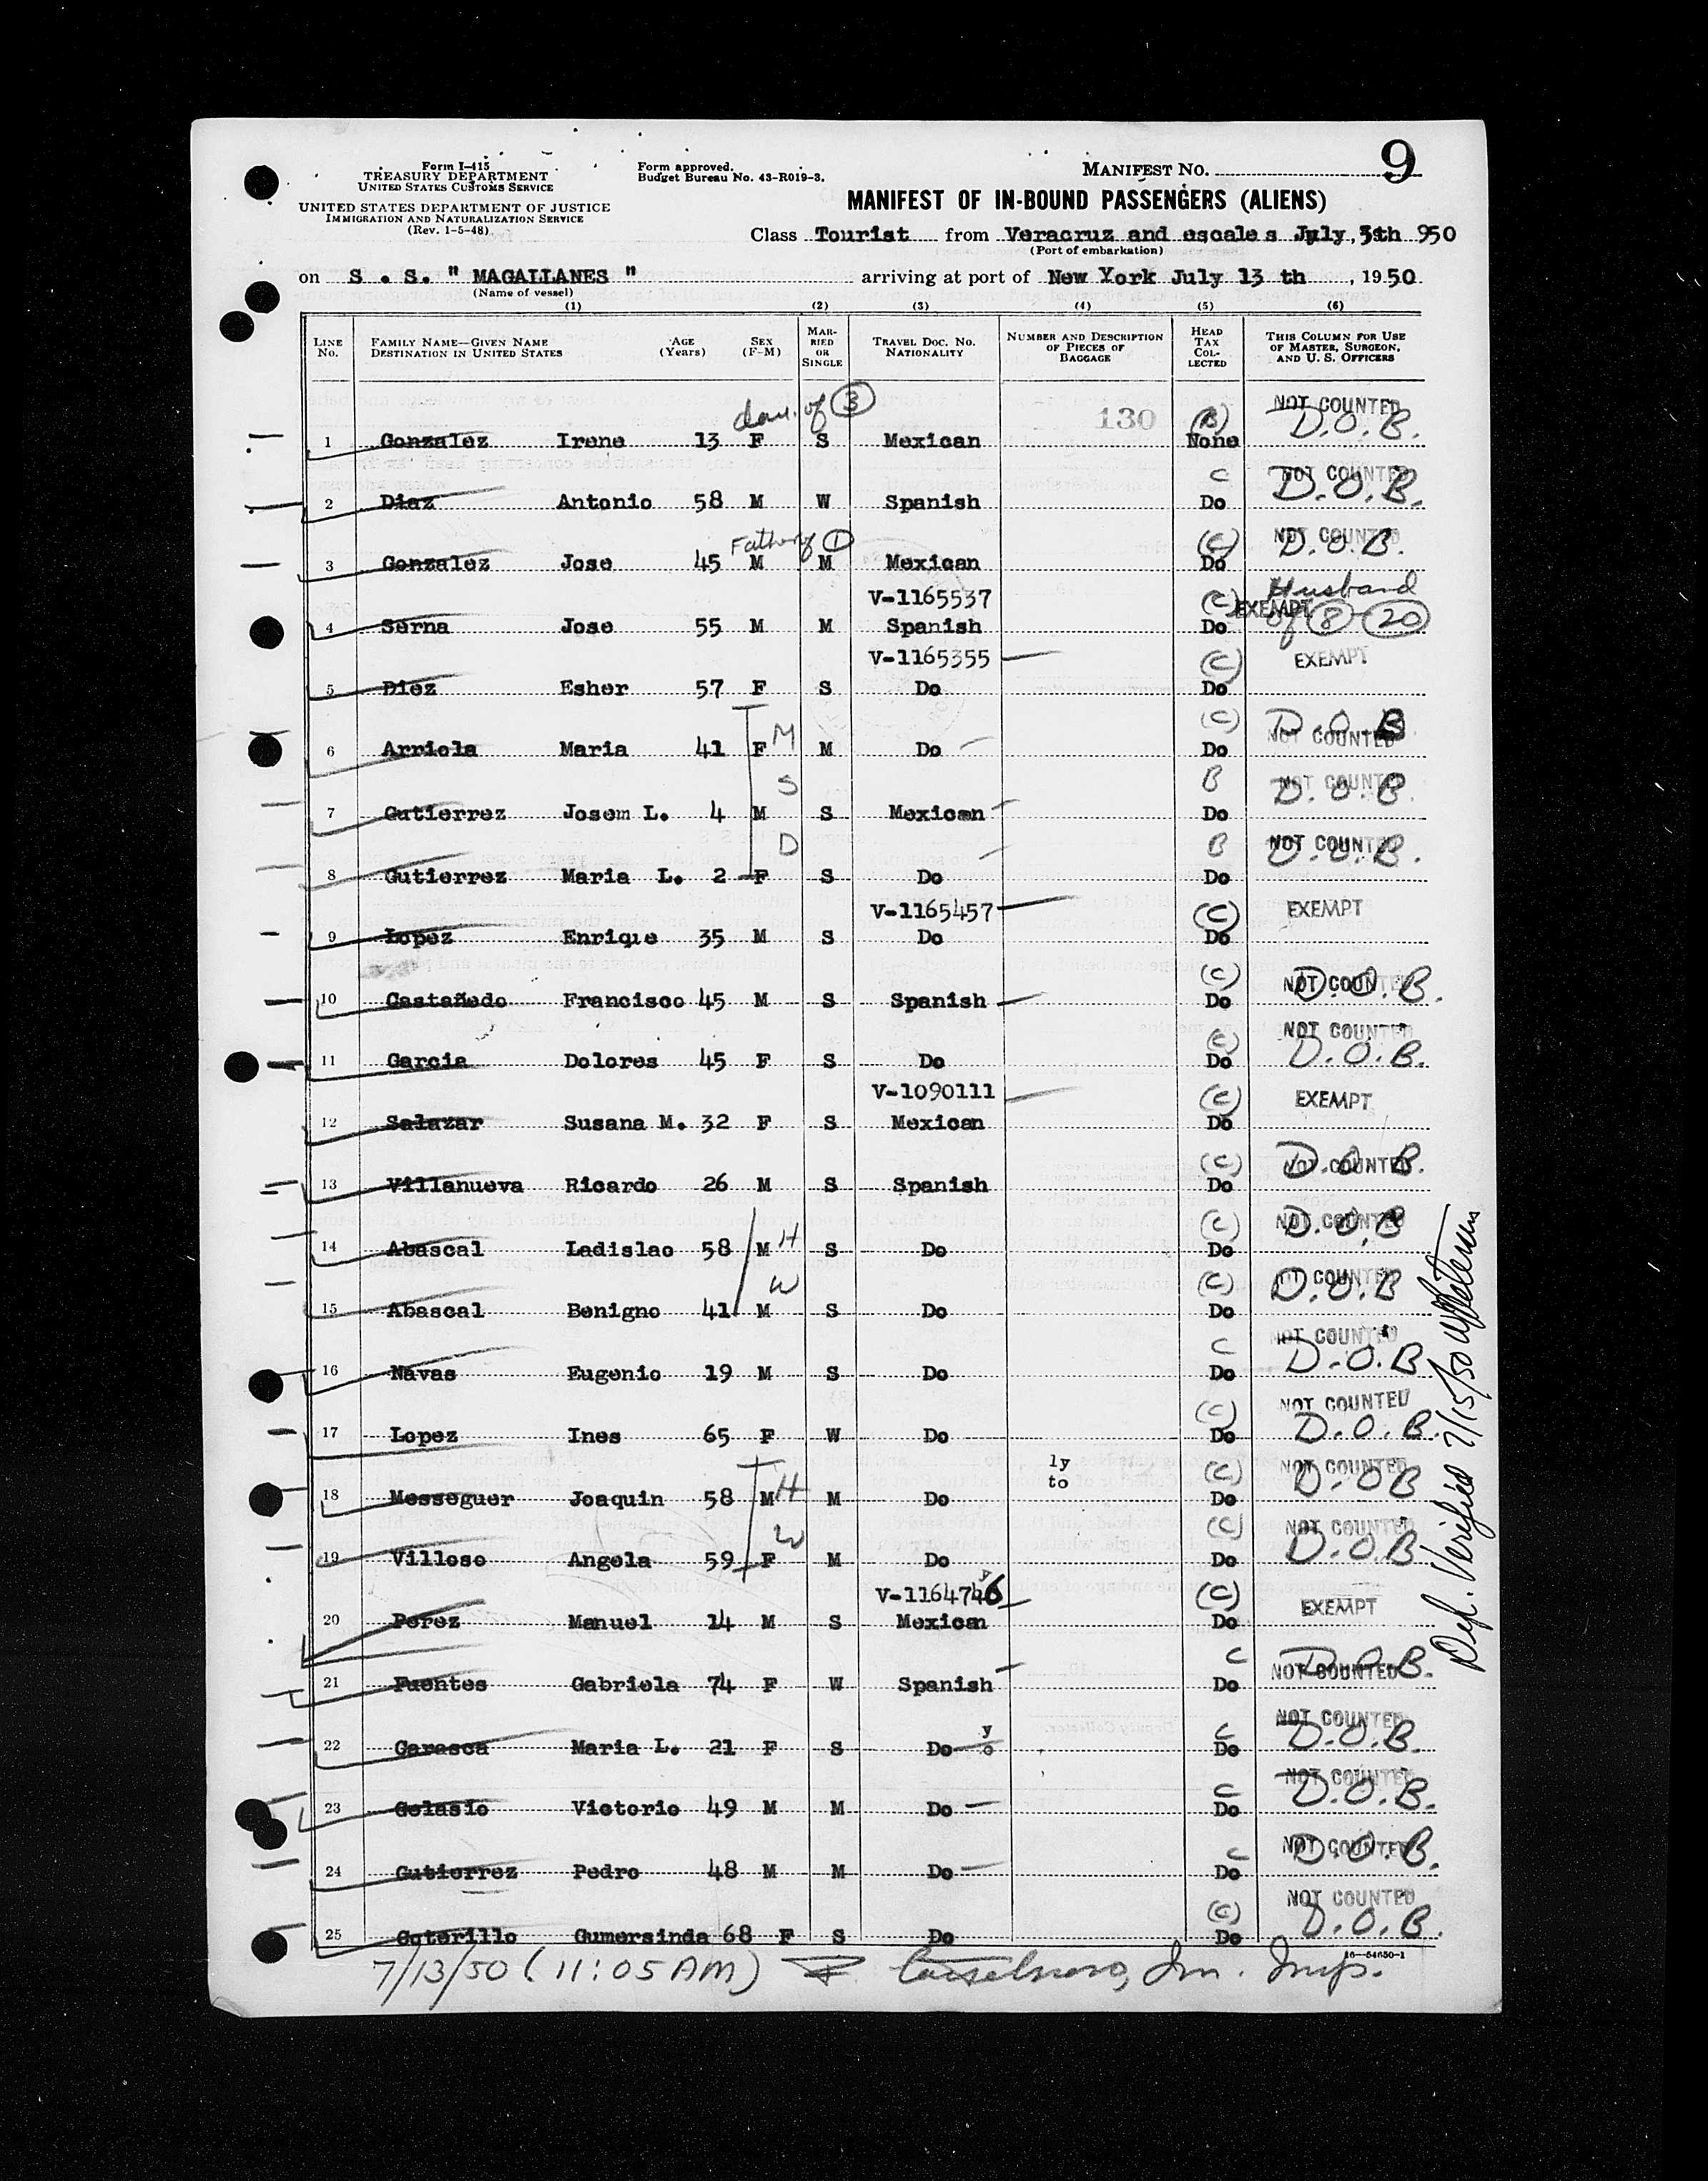 Form I-415
TREASURY DEPARTMENT
UNITED STATES CUSTOMS SERVICE
UNITED STATES DEPARTMENT OF JUSTICE
IMMIGRATION AND NATURALIZATION SERVICE
(Rev. 1-5-48)
Form approved.
Budget Bureau No. 43-R019-3.
MANIFEST No. 9
MANIFEST OF IN-BOUND PASSENGERS (ALIENS)
Class Tourist from Veracruz and escale s July, 5th 950
(Port of embarkation)
on S . S. " MAGALLANES " arriving at port of New York July 13 th , 1950
(Name of vessel)
(1) (2) (3) (4) (5) (6)
LINE No. FAMILY NAME—GIVEN NAME DESTINATION IN UNITED STATES AGE (Years) SEX (F-M) MARRIED OR SINGLE TRAVEL DOC. NO. NATIONALITY NUMBER AND DESCRIPTION OF PIECES OF BAGGAGE HEAD TAX COLLECTED THIS COLUMN FOR USE OF MASTER, SURGEON, AND U. S. OFFICERS
dau. of 3 130 (B) NOT COUNTED D.O.B.
1 Gonzalez Irene 13 F S Mexican None
C NOT COUNTED D.O.B.
2 Diaz Antonio 58 M W Spanish Do
Father of 1 (C) NOT COUNTED D.O.B.
3 Gonzalez Jose 45 M M Mexican Do
V-1165537 (C) EXEMPT Husband of 8 - 20
4 Serna Jose 55 M M Spanish Do
V-1165355 (C) EXEMPT
5 Diez Esher 57 F S Do Do
M (C) D.O.B NOT COUNTED
6 Arriola Maria 41 F M Do Do
S B NOT COUNTED D.O.B.
7 Gutierrez Josem L. 4 M S Mexican Do
D B NOT COUNTED D.O.B.
8 Gutierrez Maria L. 2 F S Do Do
V-1165457 (C) EXEMPT
9 Lopez Enrique 35 M S Do Do
(C) NOT COUNTED D.O.B.
10 Castañedo Francisco 45 M S Spanish Do
(C) NOT COUNTED D.O.B.
11 Garcia Dolores 45 F S Do Do
V-1090111 (C) EXEMPT
12 Salazar Susana M. 32 F S Mexican Do
(C) NOT COUNTED D.O.B.
13 Villanueva Ricardo 26 M S Spanish Do
H (C) NOT COUNTED D.O.B
14 Abascal Ladislao 58 M S Do Do
W (C) NOT COUNTED D.O.B
15 Abascal Benigno 41 M S Do Do
C NOT COUNTED D.O.B
16 Navas Eugenio 19 M S Do Do
(C) NOT COUNTED D.O.B.
17 Lopez Ines 65 F W Do Do
ly
to
H (C) NOT COUNTED D.OB
18 Messeguer Joaquin 58 M M Do Do
W (C) NOT COUNTED D.O.B
19 Villoso Angela 59 F M Do Do
V-1164746 (C) EXEMPT
20 Perez Manuel 14 M S Mexican Do
C NOT COUNTED D.O.B.
21 Fuentes Gabriela 74 F W Spanish Do
y C NOT COUNTED D.O.B.
22 Garasca Maria L. 21 F S Do o Do
C NOT COUNTED D.O.B.
23 Gelasio Victorio 49 M M Do Do
C NOT COUNTED D.O.B.
24 Gutierrez Pedro 48 M M Do Do
(C) NOT COUNTED D.O.B.
25 Coterillo Gumersinda 68 F S Do Do
16—54650-1
7/13/50 (11:05 AM) Im. Insp.
Def. Verified 7/15/50